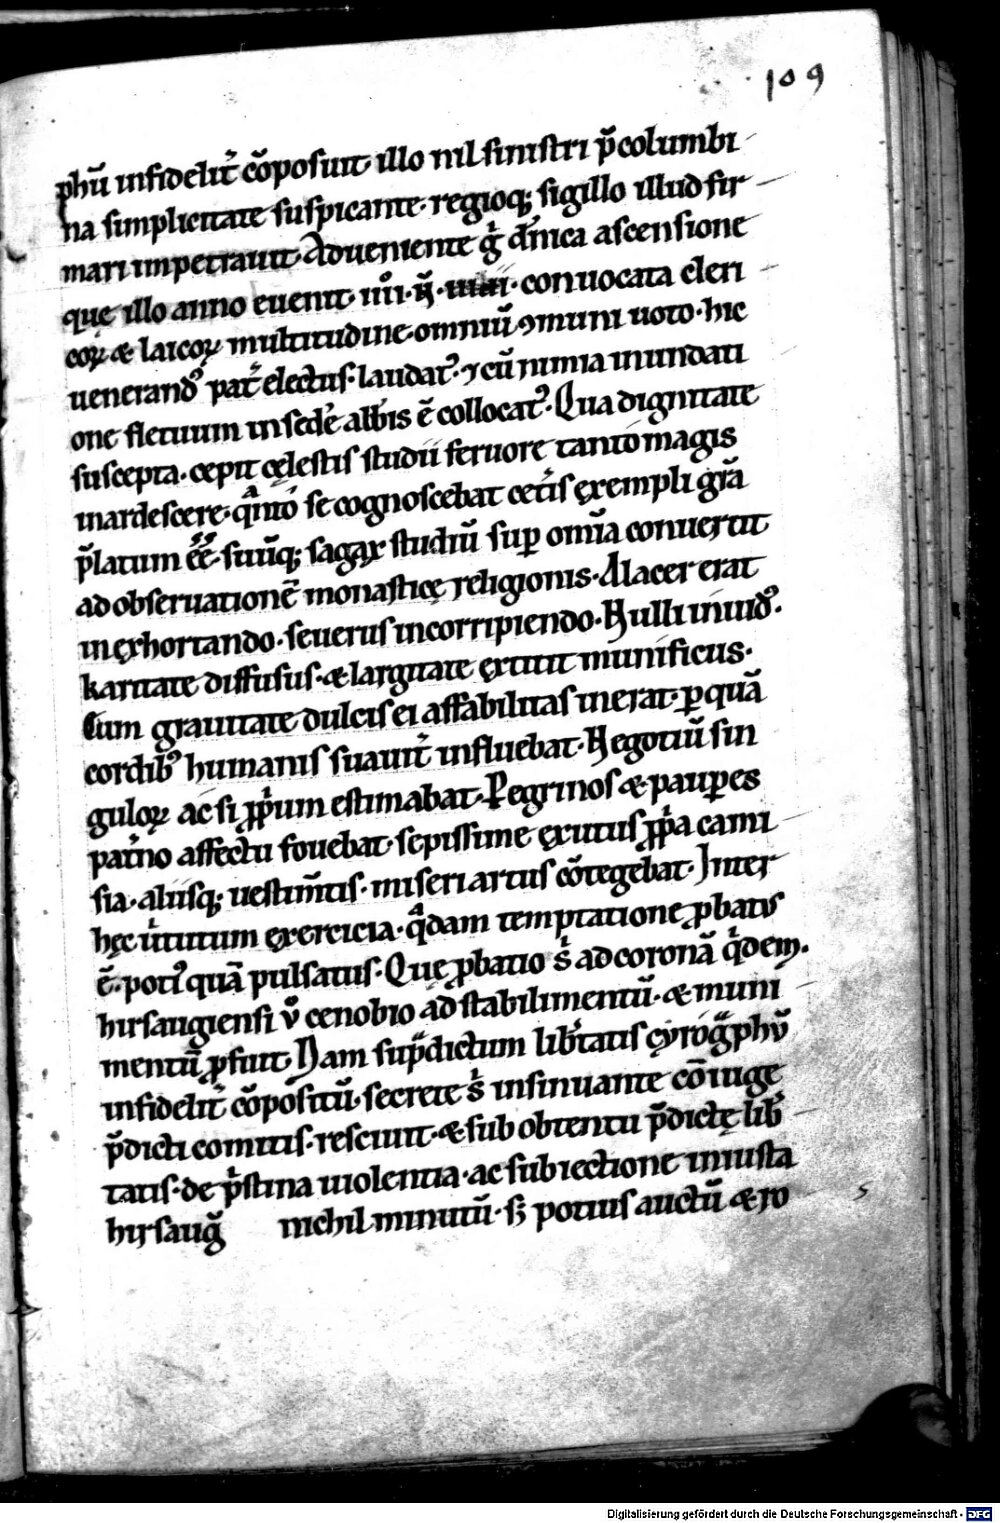 109
phū infidelit̄ cōposuit illo nil sinistri p̄ columbi
na simplicitate suspicante· regioq; sigillo illud fir
mari impetrauit· Adueniente g̊ dn̄ica ascensione
quę illo anno euenit· iiii· n̄· conuocata cleri
coꝝ & laicoꝝ multitudine· omniū ꝯmuni uoto· hic
uenerandꝰ pat̄ electus· laudat᷒· ⁊ cū nimia inundati
one fletuum in sede abb̄is ē collocat᷒· Qua dignitate
suscepta· cepit cęlestis studii feruore tanto magis
inardescere· qͣnto se cognoscebat cet̄is exempli gr̄a
p̄latum ee̅· suūq; sagax studiū sup om̄ia conuertit
ad obseruationē monasticę religionis· Alacer erat
in exhortando· seuerus in corripiendo· Nulli inuidꝰ·
karitate diffusus· & largitate extitit munificus·
Cum grauitate dulcis ei affabilitas inerat· ꝑ quā
cordibꝰ humanis suauit̄ influebat· Negotiū sin
guloꝝ ac si ꝓpͥum estimabat· Peregrinos & pauꝑes
pat̄no affectu fouebat· sepissime exutus ꝓpͥa cami
sia· aliisq; uestim̄tis· miseri artus cōtegebat· Inter
hęc uͥtutum exercicia· qͣdam temptatione ꝓbatus
ē· potiꝰ quā pulsatus· Quę ꝓbatio s̄ ad coronā qͥdem·
hirsaugiensi ū cenobio ad stabilimentū· & muni
mentū ꝓfuit· Nam supͣdictum lib̄tatis cyrogͣphū
infidelit̄ cōpositū· secrete s̄ insinuante cōiuge
p̄dicti comitis· resciuit· & sub obtentu p̄dictę lib̄
tatis· de pͥstina uiolentia· ac subiectione iniusta
hirsaug̅ nichil minutū· s; potius auctū & ro
Digitalisierung gefördert durch die Deutsche Forschungsgemeinschaft - DFG